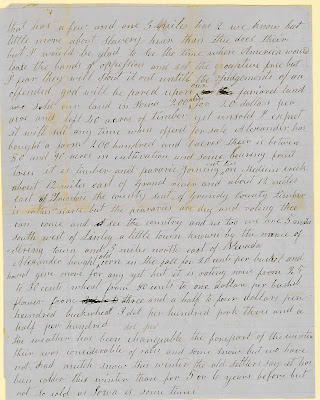 but has a few and one 5 miles has 2 we know but
little more about Slavery hear than the does their
but I would be glad to see the time when America would
lose the bands of oppression and set the captive free but
I fear they will shout it out untill the judgements of an
offended god will be pored upon our favored land
we sold our land in Iowa 200 acres for 20 dollars per
acre and left 20 acres of timber yet unsold I expect
it will sell any time when offerd for sale Alexander has
bought a farm 200 hundred and acres their is betwen
80 and 90 acres in cultivation and some housing fruit
trees it is timber and prairie joining on Medicin creek
about 12 miles east of Grand river and about 12 miles
east of the county seat of Grundy county Timber
is rather scarse but the prairies are dry and roling they
can come and see the country and us too we live 5 miles
south west of Lindley a little town known by the name of
town and 3 miles north east of Nevada
Alexander bought old corn in the fall for 20 cents per bushel and
have give more for any yet but it is raising now from 25
to 30 cents wheat from 80 cents to one dollar per bushel
flower from three and a half to four dollars per
hundred buckwheat 3 dol per hundred pork three and a
half per hundred
The weather has been changeable the forepart of the winter
their was considerable of rain and some snow but we have
not had much snow this winter the old settlers say it has
been colder this winter than for 5 or 6 years before but
not so cold as Iowa is some times